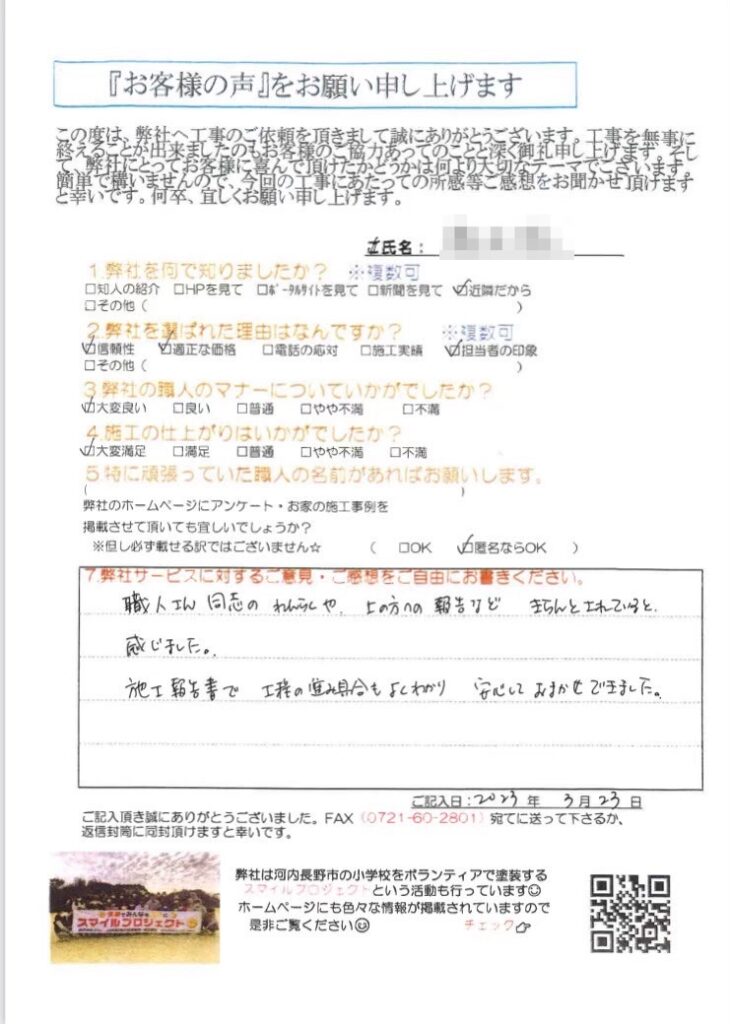 『お客様の声』をお願い申し上げます
この度は、弊社へ工事のご依頼を頂きまして誠にありがとうございます。工事を無事に
終えることが出来ましたのもお客様のご協力あってのことと深く御礼申し上げます。そし
て、弊社にとってお客様に喜んで頂けたかどうかは何より大切なテーマでございます。
簡単で構いませんので、今回の工事にあたっての所感等ご感想をお聞かせ頂けます
と幸いです。何卒、宜しくお願い申し上げます。
氏名：
1.弊社を何で知りましたか？ ※複数可
□知人の紹介 □HPを見て □ﾎﾟｰﾀﾙｻｲﾄを見て □新聞を見て ☑近隣だから
□その他（ ）
2.弊社を選ばれた理由はなんですか？ ※複数可
☑信頼性 ☑適正な価格 □電話の応対 □施工実績 ☑担当者の印象
□その他（ ）
3.弊社の職人のマナーについていかがでしたか？
☑大変良い □良い □普通 □やや不満 □不満
4.施工の仕上がりはいかがでしたか？
☑大変満足 □満足 □普通 □やや不満 □不満
5.特に頑張っていた職人の名前があればお願いします。
（ ）
弊社のホームページにアンケート・お家の施工事例を
掲載させて頂いても宜しいでしょうか？
※但し必ず載せる訳ではございません☆ （ □OK ☑匿名ならOK ）
7.弊社サービスに対するご意見・ご感想をご自由にお書きください。
職人さん同志のれんらくや、上の方への報告など きちんとされていると
感じました。
施工報告書で 工程の進み具合もよくわかり 安心しておまかせできました。
ご記入日：2023年 3月23日
ご記入頂き誠にありがとうございました。FAX（0721-60-2801）宛てに送って下さるか、
返信封筒に同封頂けますと幸いです。
スマイルプロジェクト
弊社は河内長野市の小学校をボランティアで塗装する
スマイルプロジェクトという活動も行っています☺
ホームページにも色々な情報が掲載されていますので
是非ご覧ください☺ チェック👉